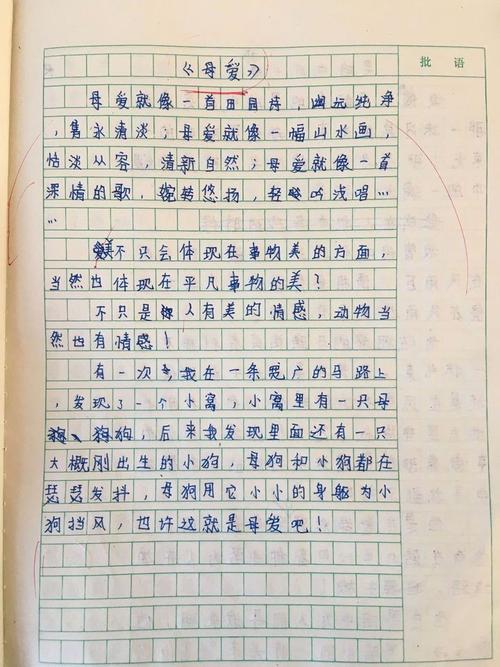 批语
《母爱》
母爱就像一首田园诗，幽远纯净
，隽永清淡；母爱就像一幅山水画，
恬淡从容，清新自然；母爱就像一首
深情的歌，婉转悠扬，轻吟浅唱…
…
美不只会体现在事物美的方面，
当然也体现在平凡事物的美？
不只是人有美的情感，动物当
然也有情感！
有一次，我在一条宽广的马路上
，发现了一个小窝，小窝里有一只母
狗狗，后来我发现里面还有一只
大概刚出生的小狗，母狗和小狗都在
瑟瑟发抖，母狗用它小小的身躯为小
狗挡风，也许这就是母爱吧！